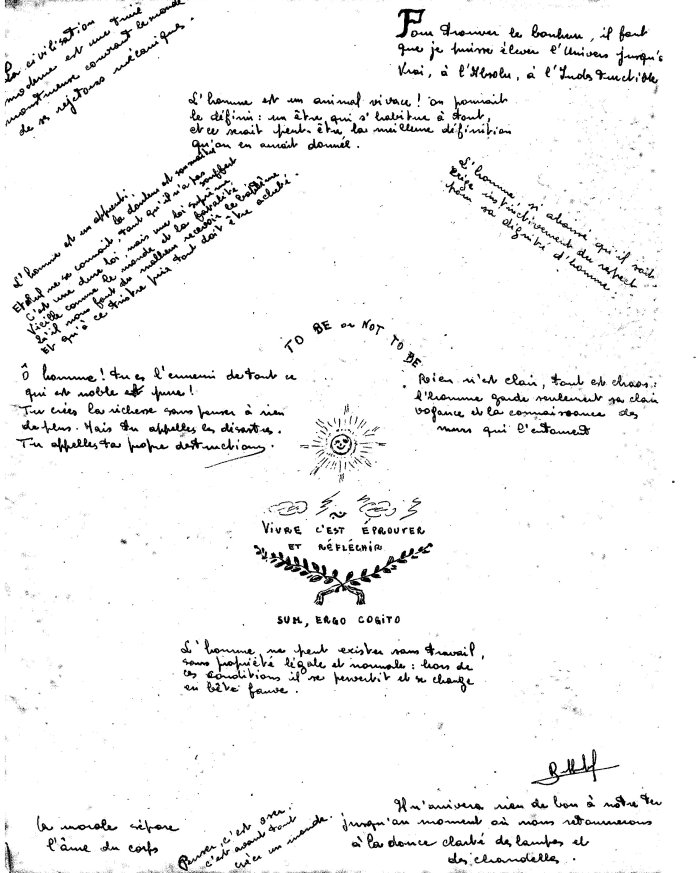 La civilisation
moderne est une truie
monstrueuse couvrant le monde
de ses rejetons mécaniques.
Pour trouver le bonheur, il faut
que je puisse élever l'Univers jusqu'au
Vrai, à l'Absolu, à l'Indestructible
L'homme est un animal vivace ! On pourrait
le définir : un être qui s'habitue à tout,
et ce serait peut-être la meilleure définition
qu'on en aurait donnée.
L'homme est un apprenti,
la douleur est son maître
Et nul ne se connait, tant qu'il n'a pas souffert
C'est une dure loi, mais une loi suprême
Vieille comme le monde et la fatalité
Qu'il nous faut du malheur recevoir le baptême
Et qu'à ce triste prix tout doit être acheté.
L'homme, si abaissé qu'il soit
exige instinctivement du respect
pour sa dignité d'homme.
TO BE or NOT TO BE
Ô homme ! tu es l'ennemi de tout ce
qui est noble et pur !
Tu crées la richesse sans penser à rien
de plus. Mais tu appelles les désastres.
Tu appelles ta propre destruction.
Rien n'est clair, tout est chaos :
l'homme garde seulement sa clair
voyance et la connaissance des
murs qui l'entourent
VIVRE C'EST ÉPROUVER
ET RÉFLÉCHIR
SUM, ERGO COGITO
L'homme ne peut exister sans travail,
sans propriété légale et normale : hors de
ces conditions il se pervertit et se change
en bête fauve.
Il n'arrivera rien de bon à notre
jusqu'au moment où nous retournerons
à la douce clarté des lampes et
des chandelles.
La morale sépare
l'âme du corps
Penser, c'est oser.
c'est avant tout
créer un monde.